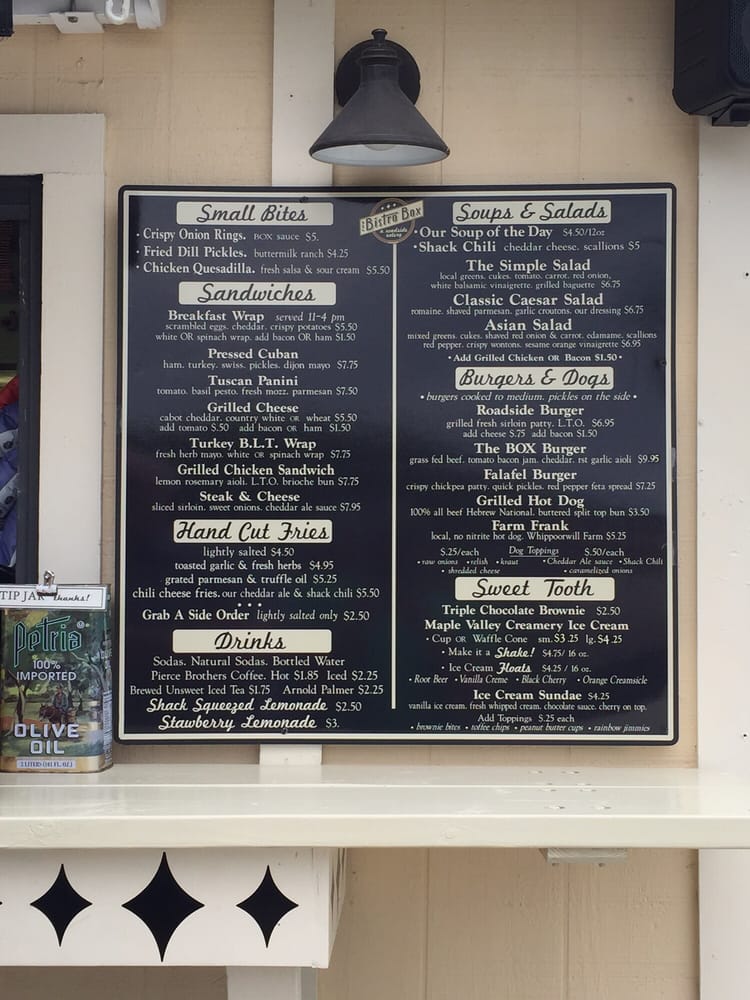 Small Bites
• Crispy Onion Rings. BOX sauce $5.
Fried Dill Pickles. buttermilk ranch $4.25
• Chicken Quesadilla. fresh salsa & sour cream $5.50
Sandwiches
Breakfast Wrap served 11-4 pm
scrambled eggs. cheddar. crispy potatoes $5.50
white OR spinach wrap. add bacon OR ham $1.50
Pressed Cuban
ham. turkey. swiss. pickles. dijon mayo $7.75
Tuscan Panini
tomato. basil pesto. fresh mozz. parmesan $7.50
Grilled Cheese
cabot cheddar. country white OR wheat $5.50
add tomato $.50 add bacon OR ham $1.50
Turkey B.L.T. Wrap
fresh herb mayo. white OR spinach wrap $7.75
Grilled Chicken Sandwich
lemon rosemary aioli. L.T.O. brioche bun $7.75
Steak & Cheese
sliced sirloin. sweet onions. cheddar ale sauce $7.95
Hand Cut Fries
lightly salted $4.50
toasted garlic & fresh herbs $4.95
grated parmesan & truffle oil $5.25
chili cheese fries. our cheddar ale & shack chili $5.50
• • •
Grab A Side Order lightly salted only $2.50
Drinks
Sodas. Natural Sodas. Bottled Water
Pierce Brothers Coffee. Hot $1.85 Iced $2.25
Brewed Unsweet Iced Tea $1.75 Arnold Palmer $2.25
Shack Squeezed Lemonade $2.50
Stawberry Lemonade $3.
THE Bistro Box
a roadside eatery
Soups & Salads
• Our Soup of the Day $4.50/12oz
• Shack Chili cheddar cheese. scallions $5
The Simple Salad
local greens. cukes. tomato. carrot. red onion,
white balsamic vinaigrette. grilled baguette $6.75
Classic Caesar Salad
romaine. shaved parmesan. garlic croutons. our dressing $6.75
Asian Salad
mixed greens. cukes. shaved red onion & carrot. edamame. scallions
red pepper. crispy wontons. sesame orange vinaigrette $6.95
• Add Grilled Chicken OR Bacon $1.50 •
Burgers & Dogs
• burgers cooked to medium. pickles on the side •
Roadside Burger
grilled fresh sirloin patty. L.T.O. $6.95
add cheese $.75 add bacon $1.50
The BOX Burger
grass fed beef. tomato bacon jam. cheddar. rst garlic aioli $9.95
Falafel Burger
crispy chickpea patty. quick pickles. red pepper feta spread $7.25
Grilled Hot Dog
100% all beef Hebrew National. buttered split top bun $3.50
Farm Frank
local, no nitrite hot dog. Whippoorwill Farm $5.25
$.25/each Dog Toppings $.50/each
• raw onions • relish • kraut • Cheddar Ale sauce • Shack Chili
• shredded cheese • caramelized onions
Sweet Tooth
Triple Chocolate Brownie $2.50
Maple Valley Creamery Ice Cream
• Cup OR Waffle Cone sm. $3.25 lg. $4.25
• Make it a Shake! $4.75/ 16 oz.
• Ice Cream Floats $4.25 / 16 oz.
• Root Beer • Vanilla Creme • Black Cherry • Orange Creamsicle
Ice Cream Sundae $4.25
vanilla ice cream. fresh whipped cream. chocolate sauce. cherry on top.
Add Toppings $.25 each
• brownie bites • toffee chips • peanut butter cups • rainbow jimmies
TIP JAR thanks!
Petria
100%
IMPORTED
OLIVE
OIL